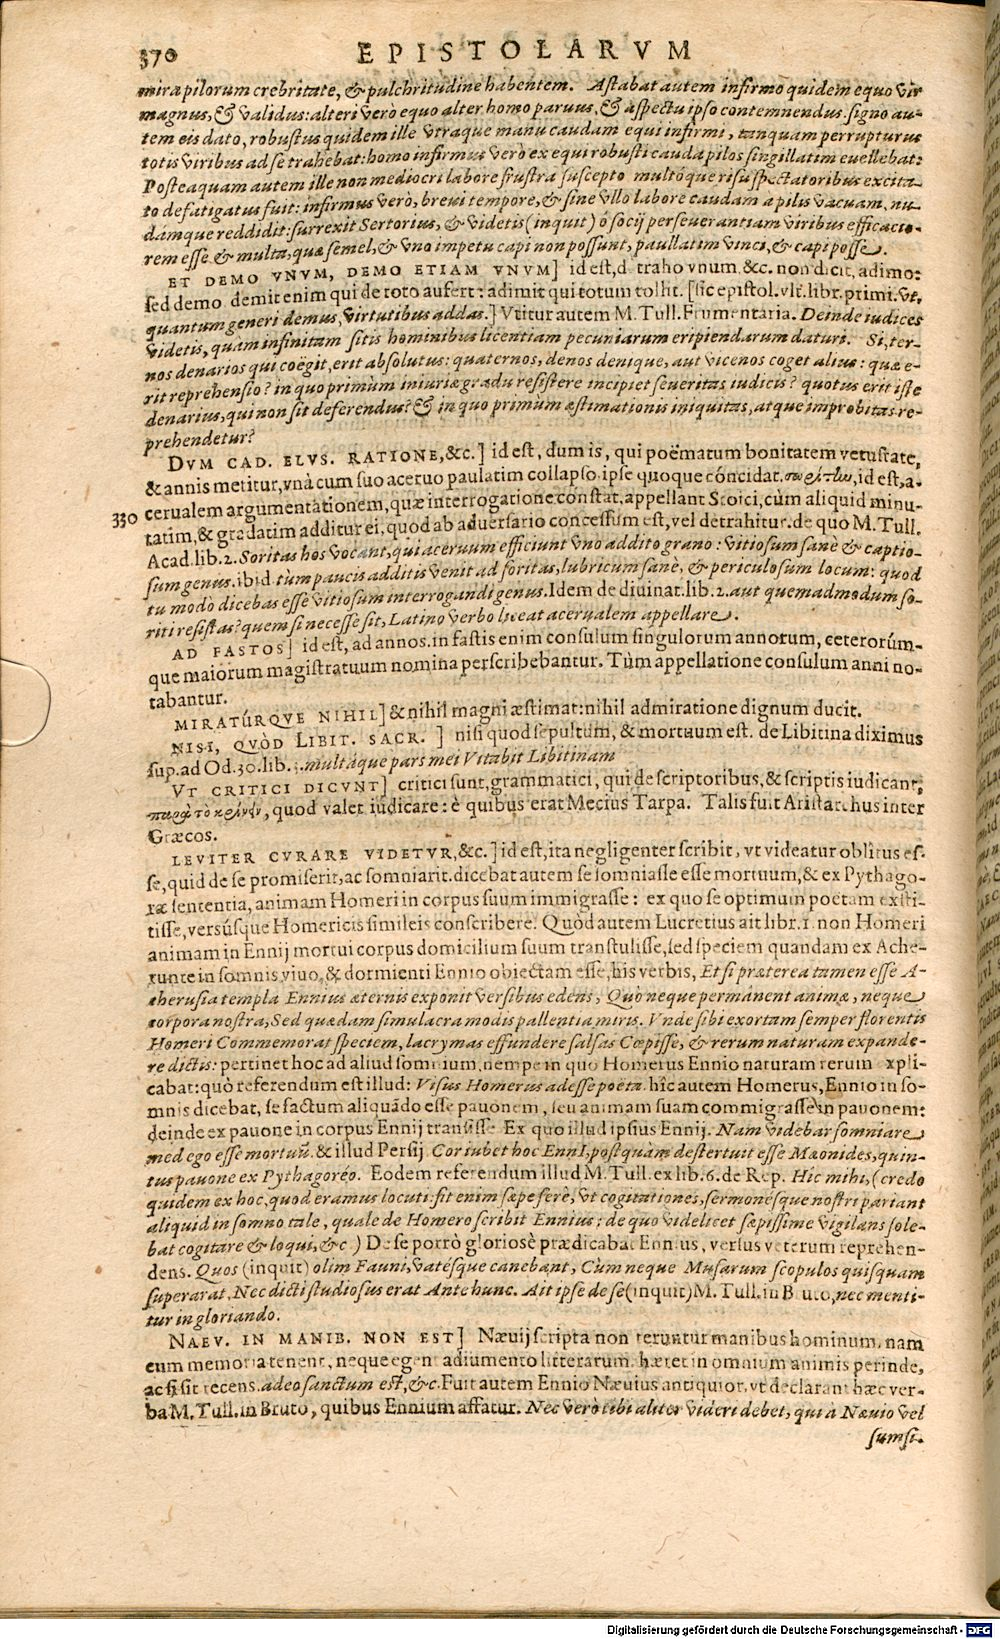 370 EPISTOLARVM
miræ pilorum crebritate, & pulchritudine habentem. Astabat autem infirmo quidem equo vir
magnus, & validus: alteri verò equo alter homo paruus, & aspectu ipso contemnendus. signo au-
tem eis dato, robustus quidem ille vtraque manu caudam equi infirmi, tanquam perrupturus
totis viribus ad se trahebat: homo infirmus verò ex equi robusti cauda pilos singillatim euellebat:
Posteaquam autem ille non mediocri labore frustra suscepto multóque risu spectatoribus excita-
to defatigatus fuit: infirmus verò, breui tempore, & sine vllo labore caudam a pilis vacuam, nu-
dámque reddidit: surrexit Sertorius, & videtis (inquit) ô socij perseuerantiam viribus efficacio-
rem esse & multa, quæ semel, & vno impetu capi non possunt, paullatim vinci, & capi posse.
ET DEMO VNVM, DEMO ETIAM VNVM] id est, d traho vnum &c. non dicit, adimo:
sed demo demit enim qui de toto aufert: adimit qui totum tollit. [sic epistol. vlt. libr. primi. Vt,
quantum generi demus, virtutibus addas.] Vtitur autem M. Tull. Frumentaria. Deinde iudices
videtis, quam infinitam sitis hominibus licentiam pecuniarum eripiendarum daturi. Si, ter-
nos denarios qui coëgit, erit absolutus: quaternos, denos denique, aut vicenos coget alius: quæ e-
rit reprehensio? in quo primum iniuriæ gradu resistere incipiet seueritas iudicis? quotus erit iste
denarius, qui non sit deferendus? & in quo primùm æstimationis iniquitas, atque improbitas re-
prehendetur?
DVM CAD. ELVS. RATIONE, &c.] id est, dum is, qui poëmatum bonitatem vetustate,
& annis metitur, vnà cum suo aceruo paulatim collapso, ipse quoque cóncidat. σωρείτην, id est, a-
330 cerualem argumentationem, quæ interrogatione constat, appellant Stoici, cùm aliquid minu-
tatim, & gradatim additur ei, quod ab aduersario concessum est, vel detrahitur. de quo M. Tull.
Acad. lib. 2. Soritas hos vocant, qui aceruum efficiunt vno addito grano: vitiosum sanè & captio-
sum genus. ibid. tum paucis additis venit ad soritas, lubricum sanè, & periculosum locum: quod
tu modò dicebas esse vitiosum interrogandi genus. Idem de diuinat. lib. 2. aut quemadmodum so-
riti resistas? quem si necesse sit, Latino verbo liceat acerualem appellare.
AD FASTOS] id est, ad annos. in fastis enim consulum singulorum annorum, ceterorúm-
que maiorum magistratuum nomina perscribebantur. Tùm appellatione consulum anni no-
tabantur.
MIRATÚRQVE NIHIL] & nihil magni æstimat: nihil admiratione dignum ducit.
NISI, QVÒD LIBIT. SACR. ] nisi quod sepultum, & mortuum est. de Libitina diximus
sup. ad Od. 30. lib. 3. multáque pars mei Vitabit Libitinam
VT CRITICI DICVNT] critici sunt, grammatici, qui de scriptoribus, & scriptis iudicant,
παρὰ τὸ κρίνειν, quod valet iudicare: è quibus erat Mecius Tarpa. Talis fuit Aristarchus inter
Græcos.
LEVITER CVRARE VIDETVR, &c.] id est, ita negligenter scribit, vt videatur oblitus es-
se, quid de se promiserit, ac somniarit. dicebat autem se somniasse esse mortuum, & ex Pythago-
ræ sententia, animam Homeri in corpus suum immigrasse: ex quo se optimum poëtam exsti-
tisse, versúsque Homericis simileis conscribere. Quòd autem Lucretius ait libr. 1. non Homeri
animam in Ennij mortui corpus domicilium suum transtulisse, sed speciem quandam ex Ache-
runte in somnis viuo, & dormienti Ennio obiectam esse, his verbis, Et si præterea tamen esse A-
cherusia templa Ennius æternis exponit versibus edens, Quò neque permanent animæ, neque
corpora nostra, Sed quædam simulacra modis pallentia miris. Vnde sibi exortam semper florentis
Homeri Commemorat speciem, lacrymas effundere salsas Cœpisse, & rerum naturam expande-
re dictis: pertinet hoc ad aliud somnium, nempe in quo Homerus Ennio naturam rerum expli-
cabat: quò referendum est illud: Visus Homerus adesse poëta. hîc autem Homerus, Ennio in so-
mnis dicebat, se factum aliquãdo esse pauonem, seu animam suam commigrasse in pauonem:
deinde ex pauone in corpus Ennij transisse. Ex quo illud ipsius Ennij. Nam videbar somniare
med ego esse mortuũ. & illud Persij. Cor iubet hoc EnnI, postquàm destertuit esse Mæonides, quin-
tus pauone ex Pythagoréo. Eodem referendum illud M. Tull. ex lib. 6. de Rep. Hic mihi, (credo
quidem ex hoc, quod eramus locuti: fit enim sæpe ferè, vt cogitationes, sermonésque nostri pariant
aliquid in somno tale, quale de Homero scribit Ennius; de quo videlicet sæpissime vigilans sole-
bat cogitare & loqui, &c.) De se porrò gloriosè prædicabat Ennius, versus veterum reprehen-
dens. Quos (inquit) olim Fauni, vatésque canebant, Cum neque Musarum scopulos quisquam
superarat, Nec dicti studiosus erat Ante hunc. Ait ipse de se (inquit) M. Tull. in Bruto, nec menti-
tur in gloriando.
NAEV. IN MANIB. NON EST] Næuij scripta non teruntur manibus hominum, nam
eum memoria tenent, neque egent adiumento litterarum. hæret in omnium animis perinde,
ac si sit recens. adeo sanctum est, &c. Fuit autem Ennio Næuius antiquior, vt declarant hæc ver-
ba M. Tull. in Bruto, quibus Ennium affatur. Nec verò tibi aliter videri debet, qui à Næuio vel
sumsi-
Digitalisierung gefördert durch die Deutsche Forschungsgemeinschaft - DFG